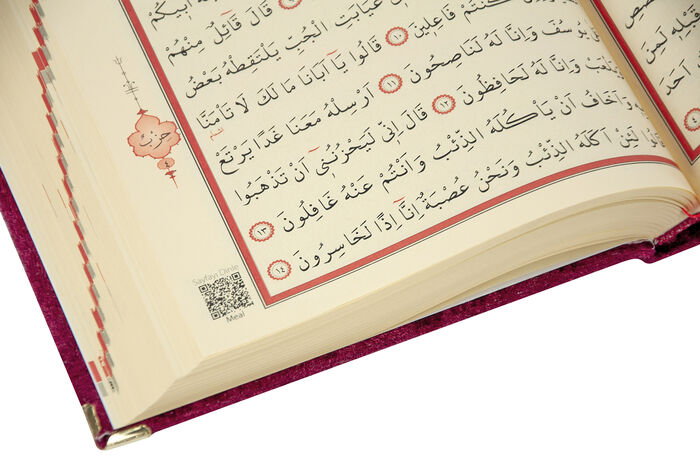 اَبِيكُمْ
قَالَ قَٓائِلٌ مِنْهُمْ
غَيَابَتِ الْجُبِّ يَلْتَقِطْهُ بَعْضُ
كُنْتُمْ فَاعِلِينَ ١٠ قَالُوا يَٓا اَبَانَا مَا لَكَ لَا تَأْمَنَّا
يُوسُفَ وَاِنَّا لَهُ لَنَاصِحُونَ ١١ اَرْسِلْهُ مَعَنَا غَدًا يَرْتَعْ
وَاِنَّا لَهُ لَحَافِظُونَ ١٢ قَالَ اِنِّي لَيَحْزُنُنِٓي اَنْ تَذْهَبُوا
وَاَخَافُ اَنْ يَأْكُلَهُ الذِّئْبُ وَاَنْتُمْ عَنْهُ غَافِلُونَ ١٣
لَئِنْ اَكَلَهُ الذِّئْبُ وَنَحْنُ عُصْبَةٌ اِنَّٓا اِذًا لَخَاسِرُونَ ١٤
حزب
Sayfayı Dinle
Meal